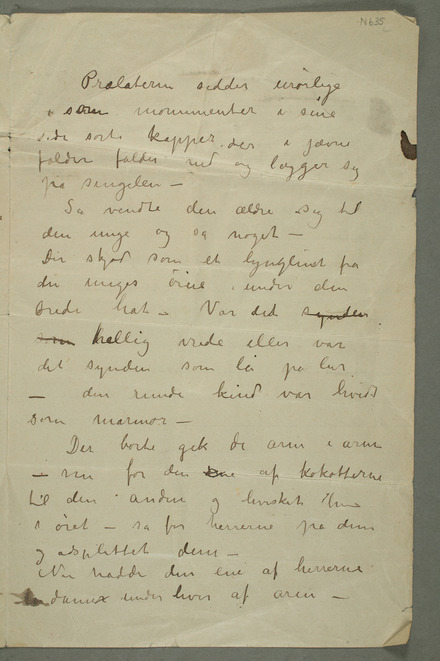 N 635
Prælaterne sidder urørlige
som monumenter i sine
side sorte kapper, der i jævne
folder falder ned og lægger sig
på singelen –
Så vendte den ældre sig til
den unge og sa noget –
Der skjød som et lynglimt fra
den unges øine under den
brede hat – Var det synden
som hellig vrede eller var
det synden som lå på lur
– den runde kind var hvidt
som marmor –
Der borte gik de arm i arm
– nu for den ene af kokotterne
til den anden og hvisket
i øret – så for herrerne på dem
og adsplittet dem –
Nu hadde den ene af herrerne
damer under hver af arm –